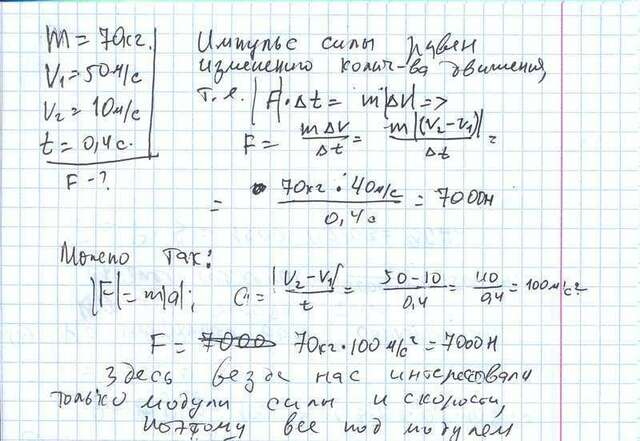 m = 70кг.
V₁ = 50м/с
V₂ = 10м/с
t = 0,4с.
F - ?
Импульс силы равен
изменению колич-ва движения,
т.е. |F|·Δt = m|ΔV| =>
F = mΔV/Δt = m|(V₂-V₁)|/Δt =
= 70кг·40м/с / 0,4с = 7000Н
Можно так:
|F| = m|a|; a = |V₂-V₁|/t = 50-10/0,4 = 40/0,4 = 100м/с²
F = 7000 70кг·100м/с² = 7000Н
Здесь везде нас интересовали
только модули силы и скорости,
поэтому все под модулем